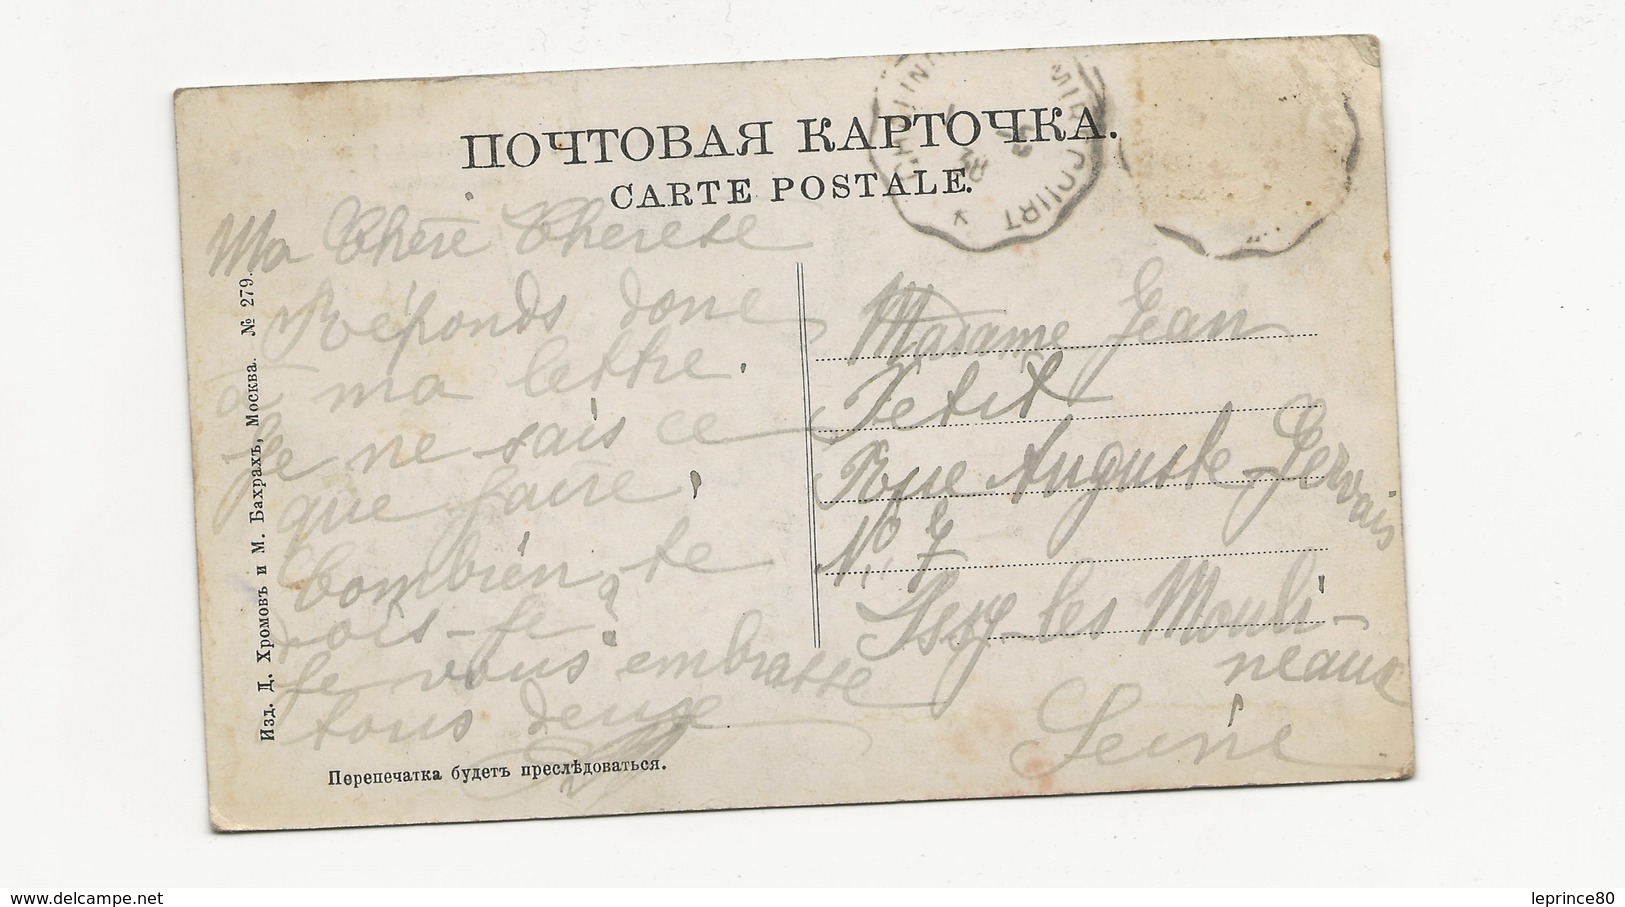 ПОЧТОВАЯ КАРТОЧКА.
CARTE POSTALE.
MIRECOURT
Ma Chère Therese
Réponds donc
à ma lettre.
Je ne sais ce
que faire.
Combien te
dois-je?
Je vous embrasse
tous deux
Madame Jean
Petit
Rue Auguste Gervais
No 7
Issy-les Mouli-
neaux
Seine
Изд. Д. Хромовъ и М. Бахрахъ, Москва. № 279.
Перепечатка будетъ преслѣдоваться.
leprince80